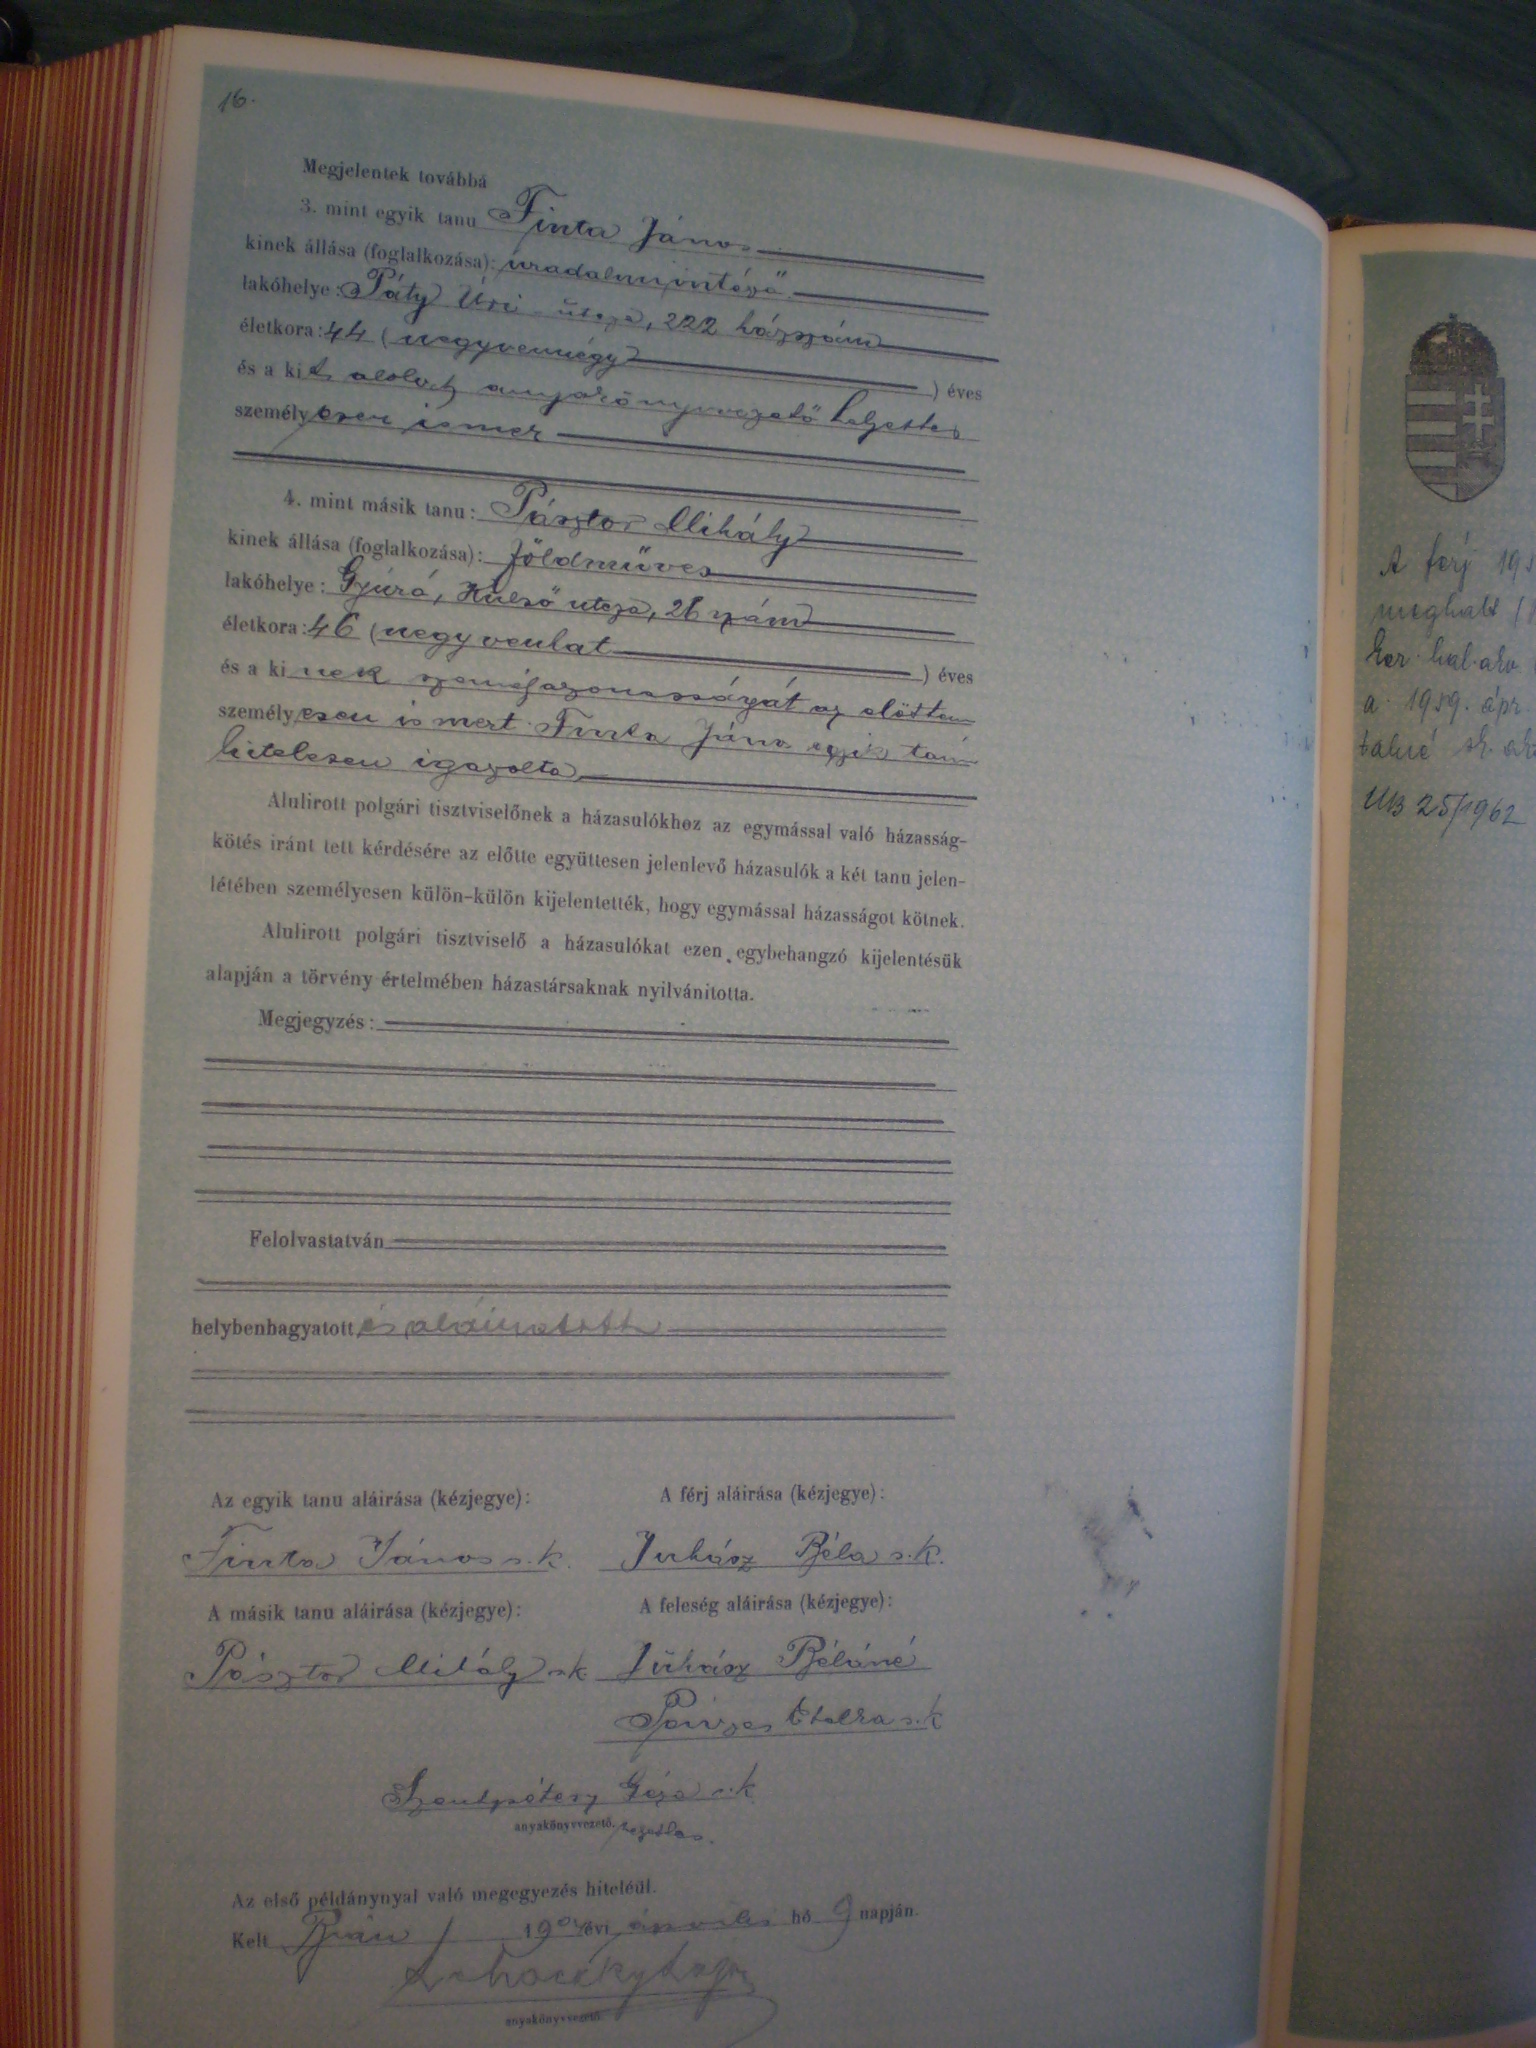 16.
Megjelentek továbbá
3. mint egyik tanu Finta János
kinek állása (foglalkozása): uradalmi intéző
lakóhelye: Páty Úri utcza, 222 házszám
életkora: 44 (negyvennégy) éves
és a kit alolirt anyakönyvvezető helyettes
személyesen ismer
4. mint másik tanu: Pásztor Mihály
kinek állása (foglalkozása): földműves
lakóhelye: Gyúró, Külső utcza, 26 szám
életkora: 46 (negyvenhat) éves
és a kinek személyazonosságát az előttem
személyesen ismert Finta János egyik tanu
hitelesen igazolta
Alulirott polgári tisztviselőnek a házasulókhoz az egymással való házasság-
kötés iránt tett kérdésére az előtte együttesen jelenlevő házasulók a két tanu jelen-
létében személyesen külön-külön kijelentették, hogy egymással házasságot kötnek.
Alulirott polgári tisztviselő a házasulókat ezen egybehangzó kijelentésük
alapján a törvény értelmében házastársaknak nyilvánította.
Megjegyzés:
Felolvastatván
helybenhagyatott és aláiratott
Az egyik tanu aláirása (kézjegye): A férj aláirása (kézjegye):
Finta János s.k. Juhász Béla s.k.
A másik tanu aláirása (kézjegye): A feleség aláirása (kézjegye):
Pásztor Mihály sk Juhász Béláné
Etelka s.k
Szentpétery Géza s.k.
anyakönyvvezető. helyettes.
Az első példánynyal való megegyezés hiteléül.
Kelt Bián 190 évi április hó 9 napján.
anyakönyvvezető.
A férj 195
meghalt
ker. hal. akv.
a. 1959. ápr.
UB 25/1962